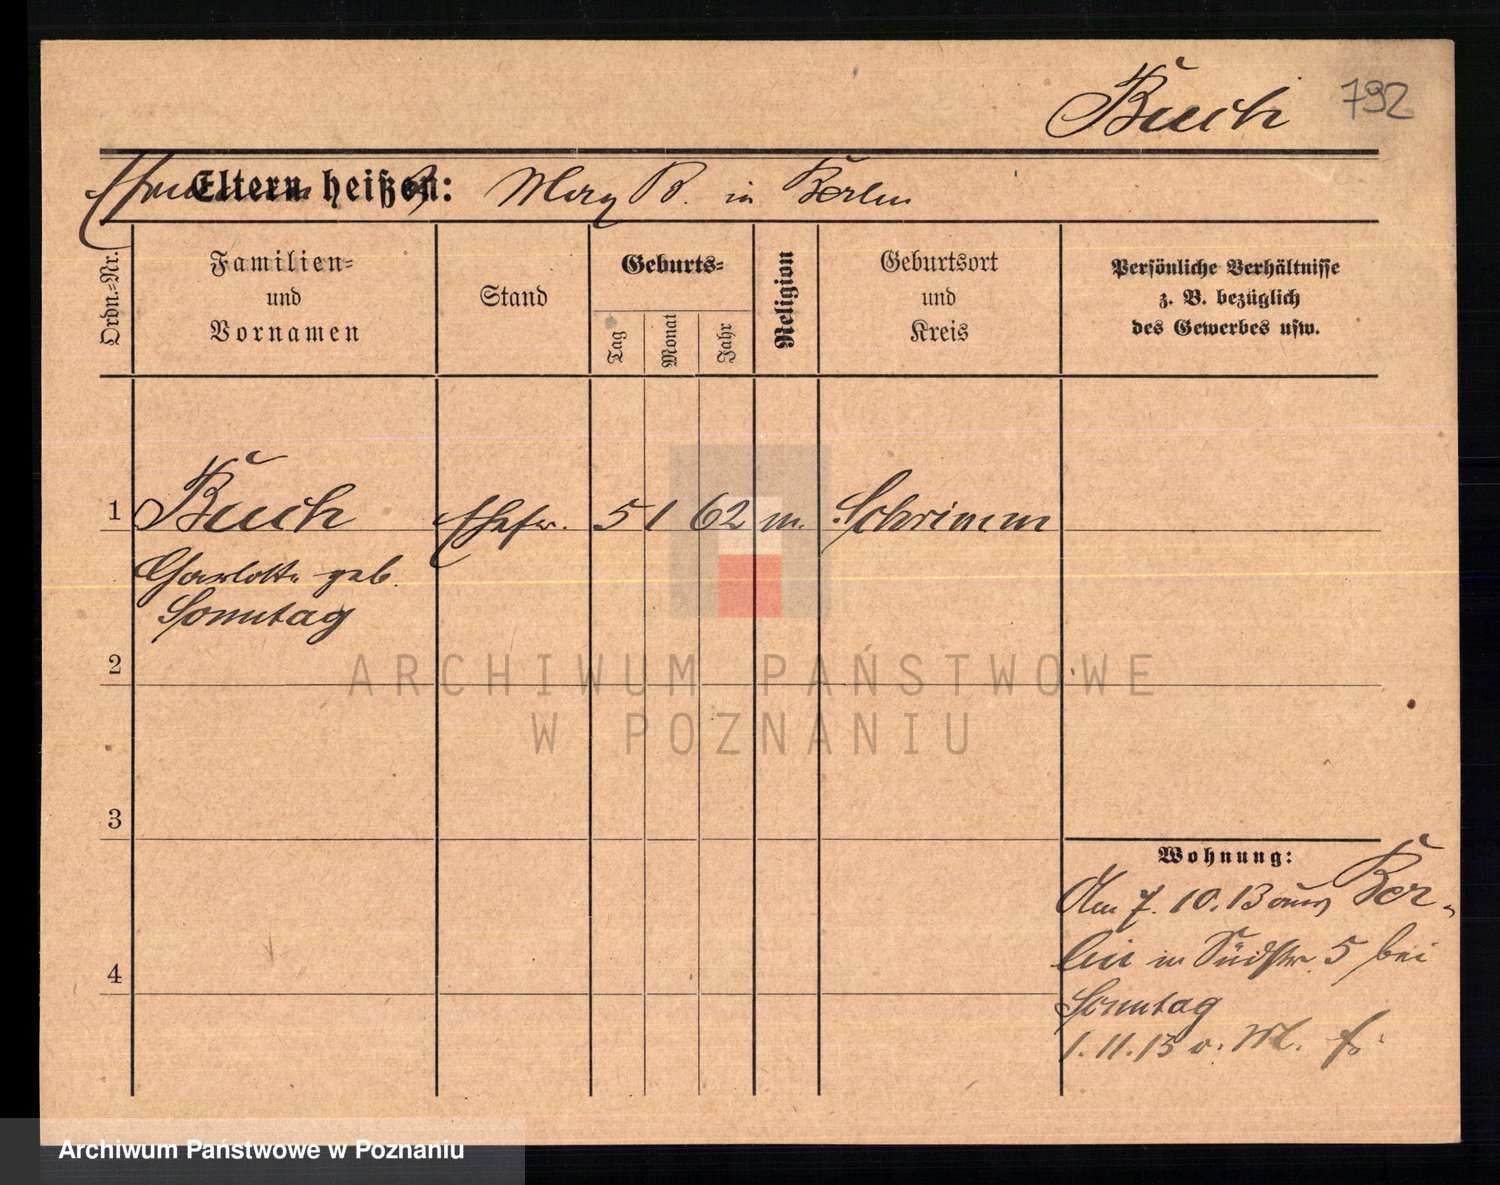 Buch 792
Eltern heißen: Max B. in Berlin
Ordn.-Nr.
Familien-
und
Vornamen
Stand
Geburts-
Tag
Monat
Jahr
Religion
Geburtsort
und
Kreis
Persönliche Verhältnisse
z. B. bezüglich
des Gewerbes usw.
1 Buch Ehefr. 5 1 62 m. Schrimm
Charlotte geb.
Sonntag
2
3
4
Wohnung:
Am 7. 10. 13 aus Ber-
lin in Südstr. 5 bei
Sonntag
1. 11. 13 v. M.
ARCHIWUM PAŃSTWOWE
W POZNANIU
Archiwum Państwowe w Poznaniu